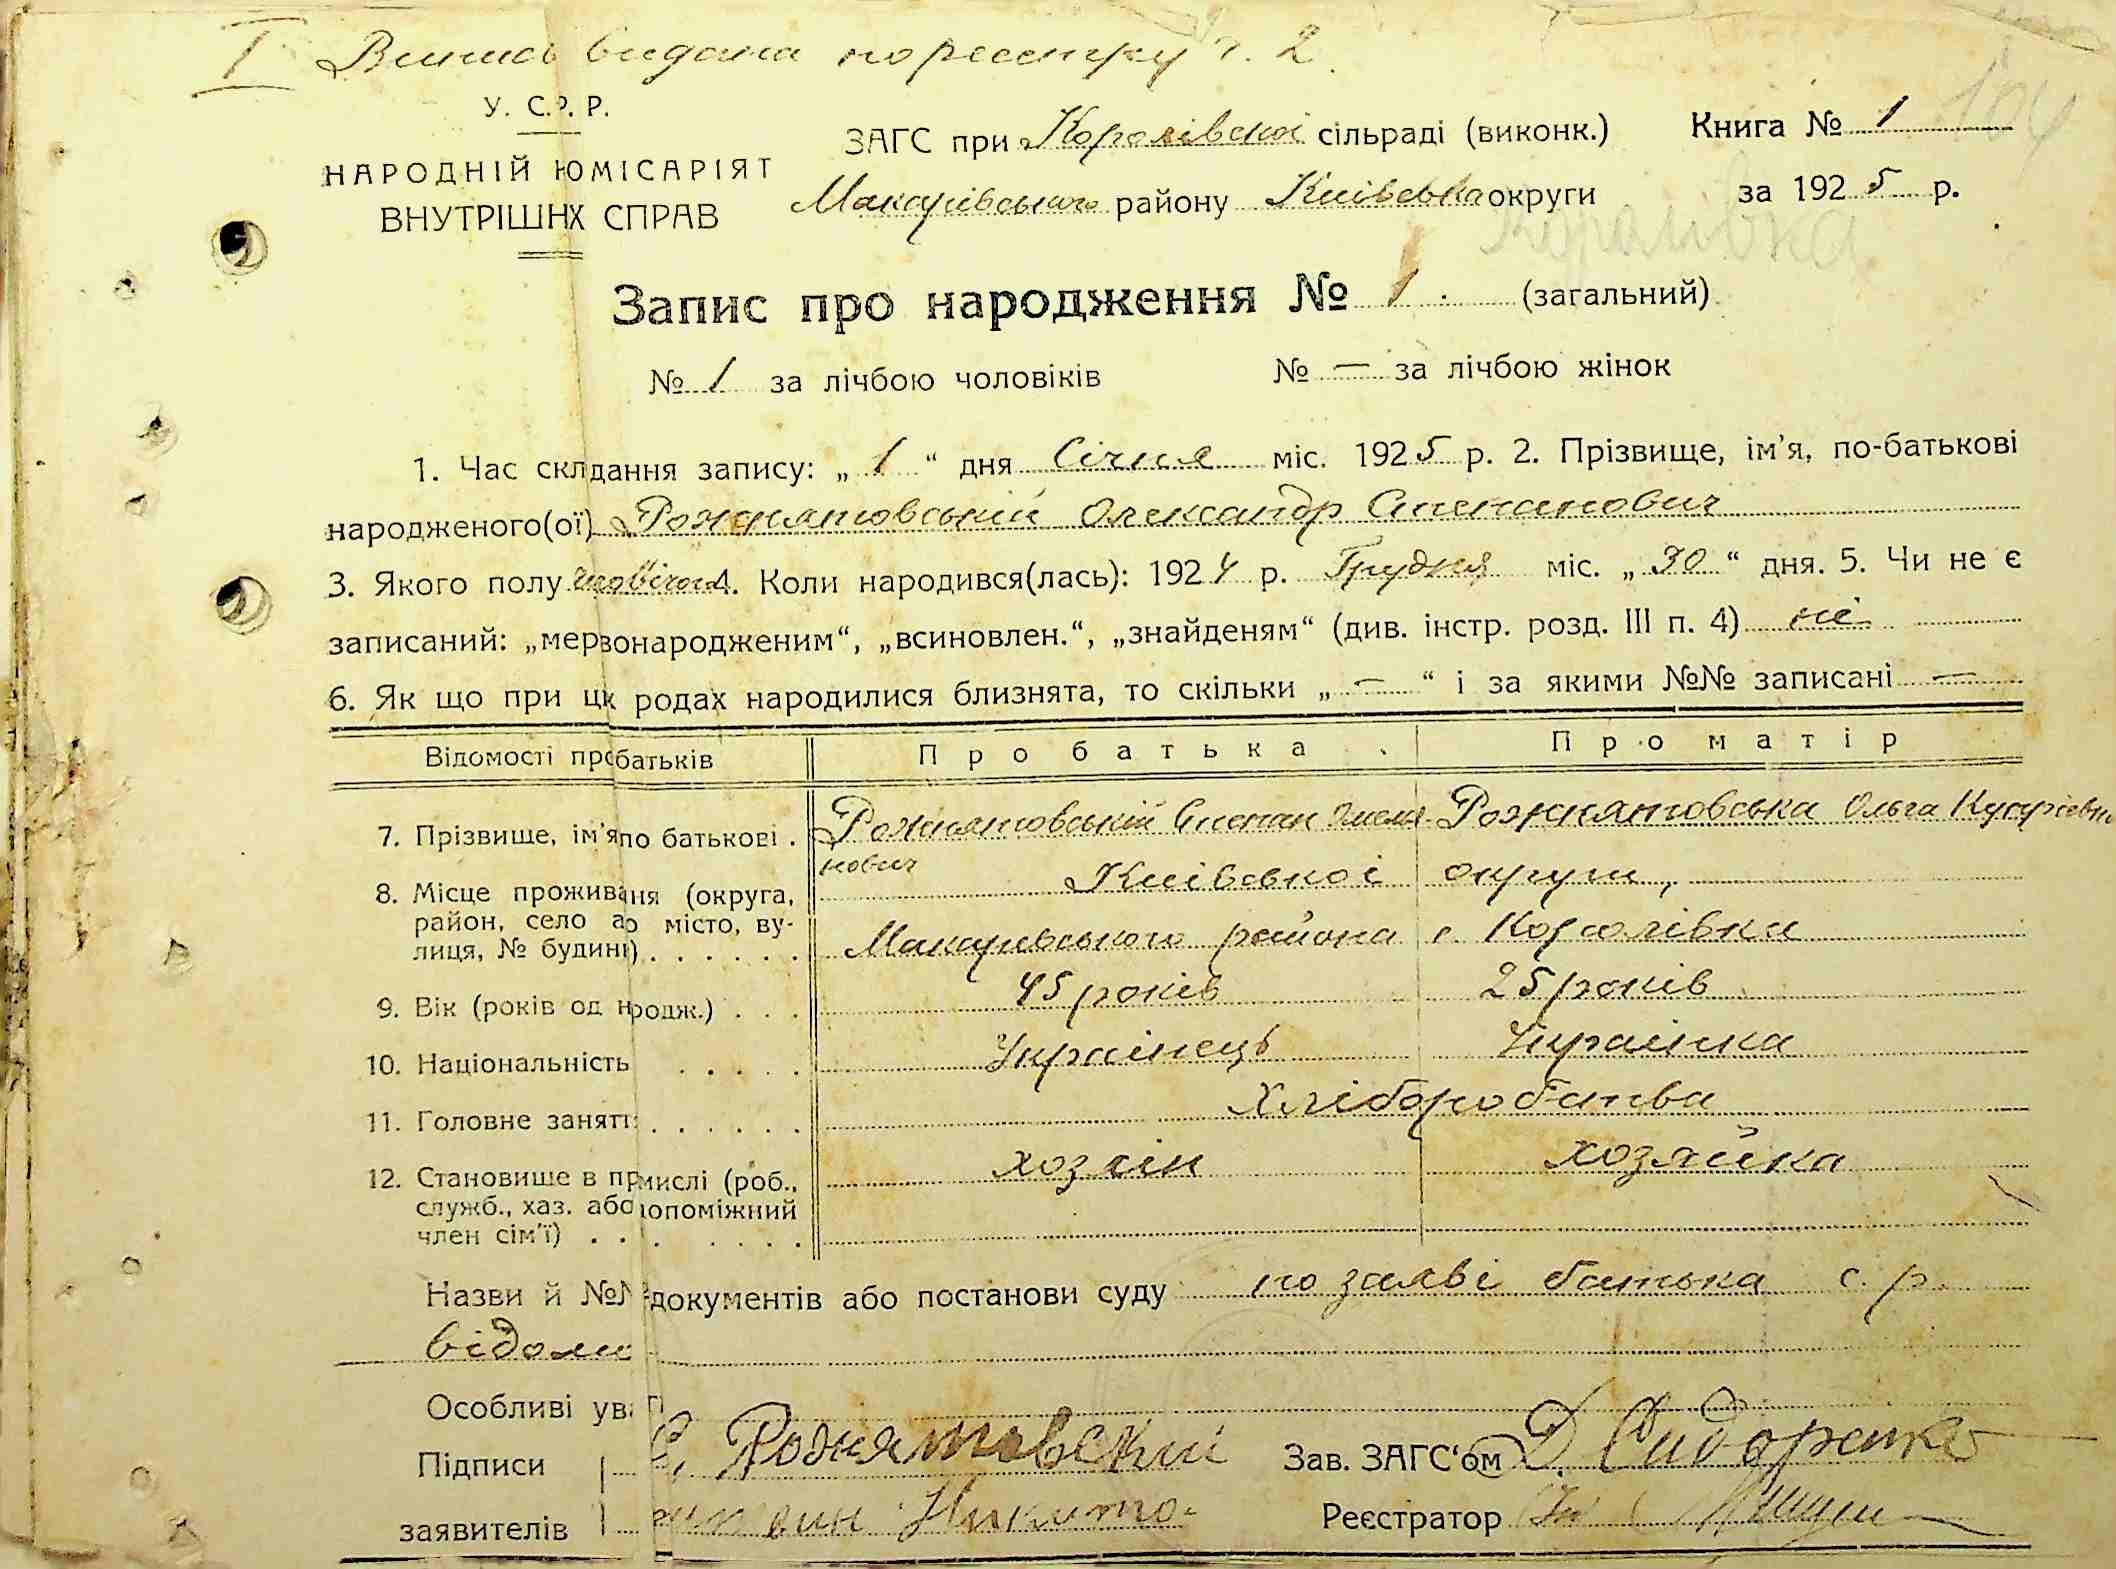 I Випись видана по реєстру ч. 2.
184
У. С. Р. Р.
НАРОДНІЙ КОМІСАРІЯТ
ВНУТРІШНІХ СПРАВ
ЗАГС при Королівскої сільраді (виконк.) Книга № 1
Макарівського району Київська округи за 1925 р.
Королівка
Запис про народження № 1. (загальний)
№ 1 за лічбою чоловіків № — за лічбою жінок
1. Час складання запису: „ 1 “ дня Січня міс. 1925 р. 2. Прізвище, ім’я, по-батькові
народженого(ої) Рожнятовській Олександр Степанович
3. Якого полу чоловічого 4. Коли народився(лась): 1924 р. Грудня міс. „ 30 “ дня. 5. Чи не є
записаний: „мервонародженим“, „всиновлен.“, „знайденям“ (див. інстр. розд. III п. 4) не
6. Як що при цих родах народилися близнята, то скільки „ — “ і за якими №№ записані —
Відомості про батьків Про батька Про матір
7. Прізвище, ім’я по батькові . Рожнятовській Степан Омеля- Рожнятовська Ольга
нович
8. Місце проживання (округа, Київської округи,
район, село або місто, ву- Макарівського района с. Королівка
лиця, № будинк.) . . . . . .
9. Вік (років од народж.) . . . 45 років 25 років
10. Національність . . . . . Українець Українка
11. Головне заняття . . . . . . Хліборобства
12. Становише в промислі (роб., хозяін хозяйка
служб., хаз. або допоміжний
член сім’ї) . . . . . . .
Назви й №№ документів або постанови суду по заяві батька с. р.
відомо
Особливі уваги
Підписи С. Рожнятовский Зав. ЗАГС‘ом Д. Сидоренко
заявителів Никито- Реєстратор